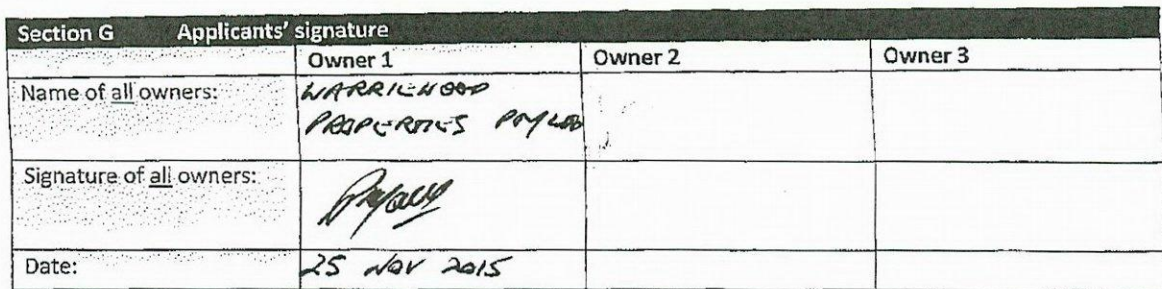 Section G Applicants' signature
Owner 1 Owner 2 Owner 3
Name of all owners: WARRIEWOOD
PROPERTIES PTY LTD
Signature of all owners:
Date: 25 NOV 2015